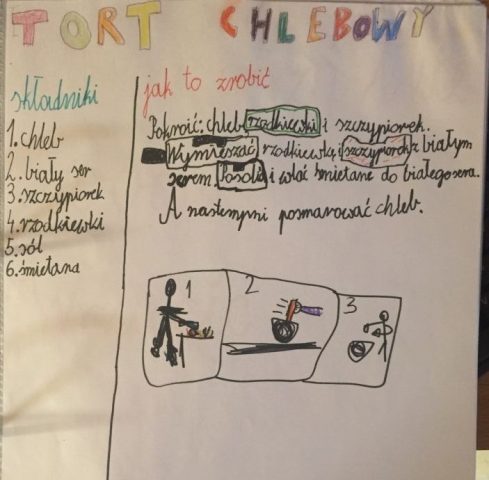 TORT CHLEBOWY
składniki
1. chleb
2. biały ser
3. szczypiorek
4. rzodkiewki
5. sól
6. śmietana
jak to zrobić
Pokroić: chleb rzodkiewki i szczypiorek.
Wymieszać rzodkiewkę i szczypiorek z białym
serem. Posolić i wlać śmietane do białego sera.
A nastempni posmarować chleb.
1
2
3